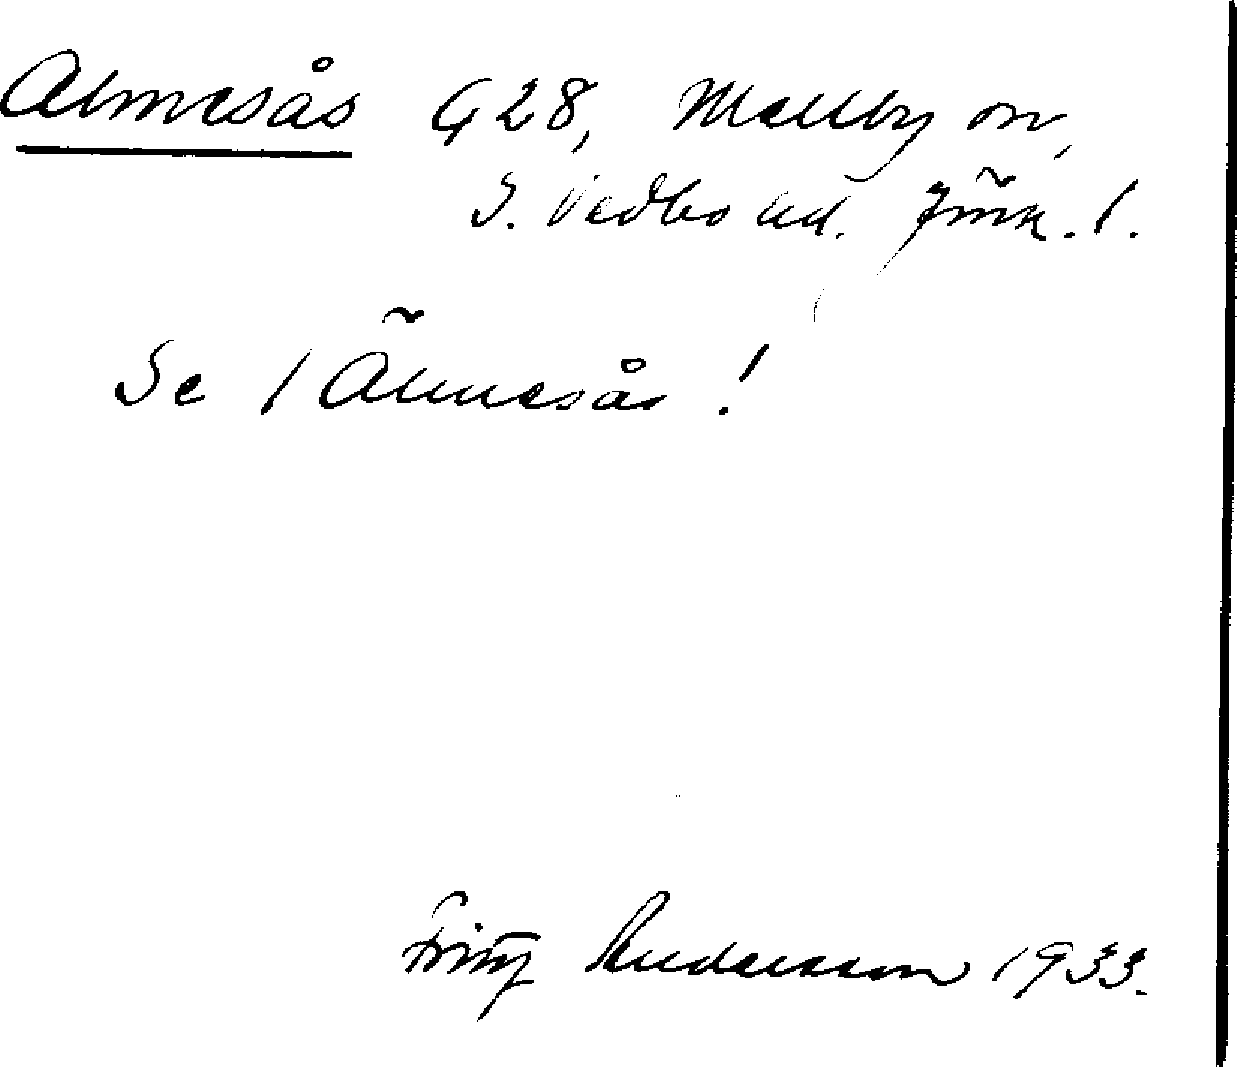 Almesås G28, Mellby sn,
S. Vedbo hd. Jönk. l.
Se 1 Älmesås !
Fritz Andersson 1933.